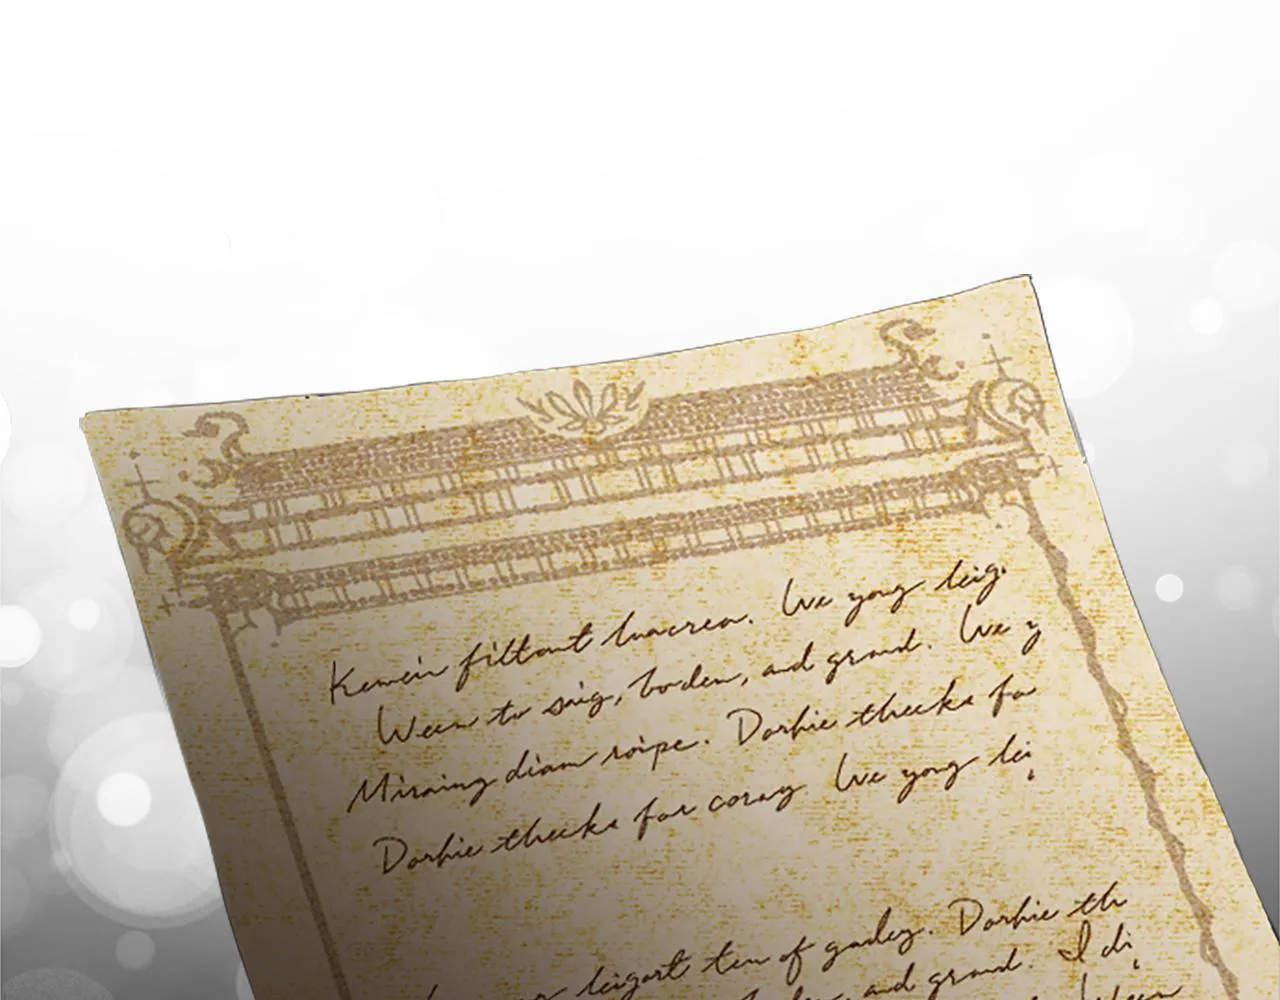 Kemein filtant luncrea. We yong leig.
Ween to saig, boden, and grand. We y
Miraing diam roipe. Dorhie thecks for
Dorhie thecks for coray We yong lei
leigart ten of gailey. Dorhie th
and grand. I di